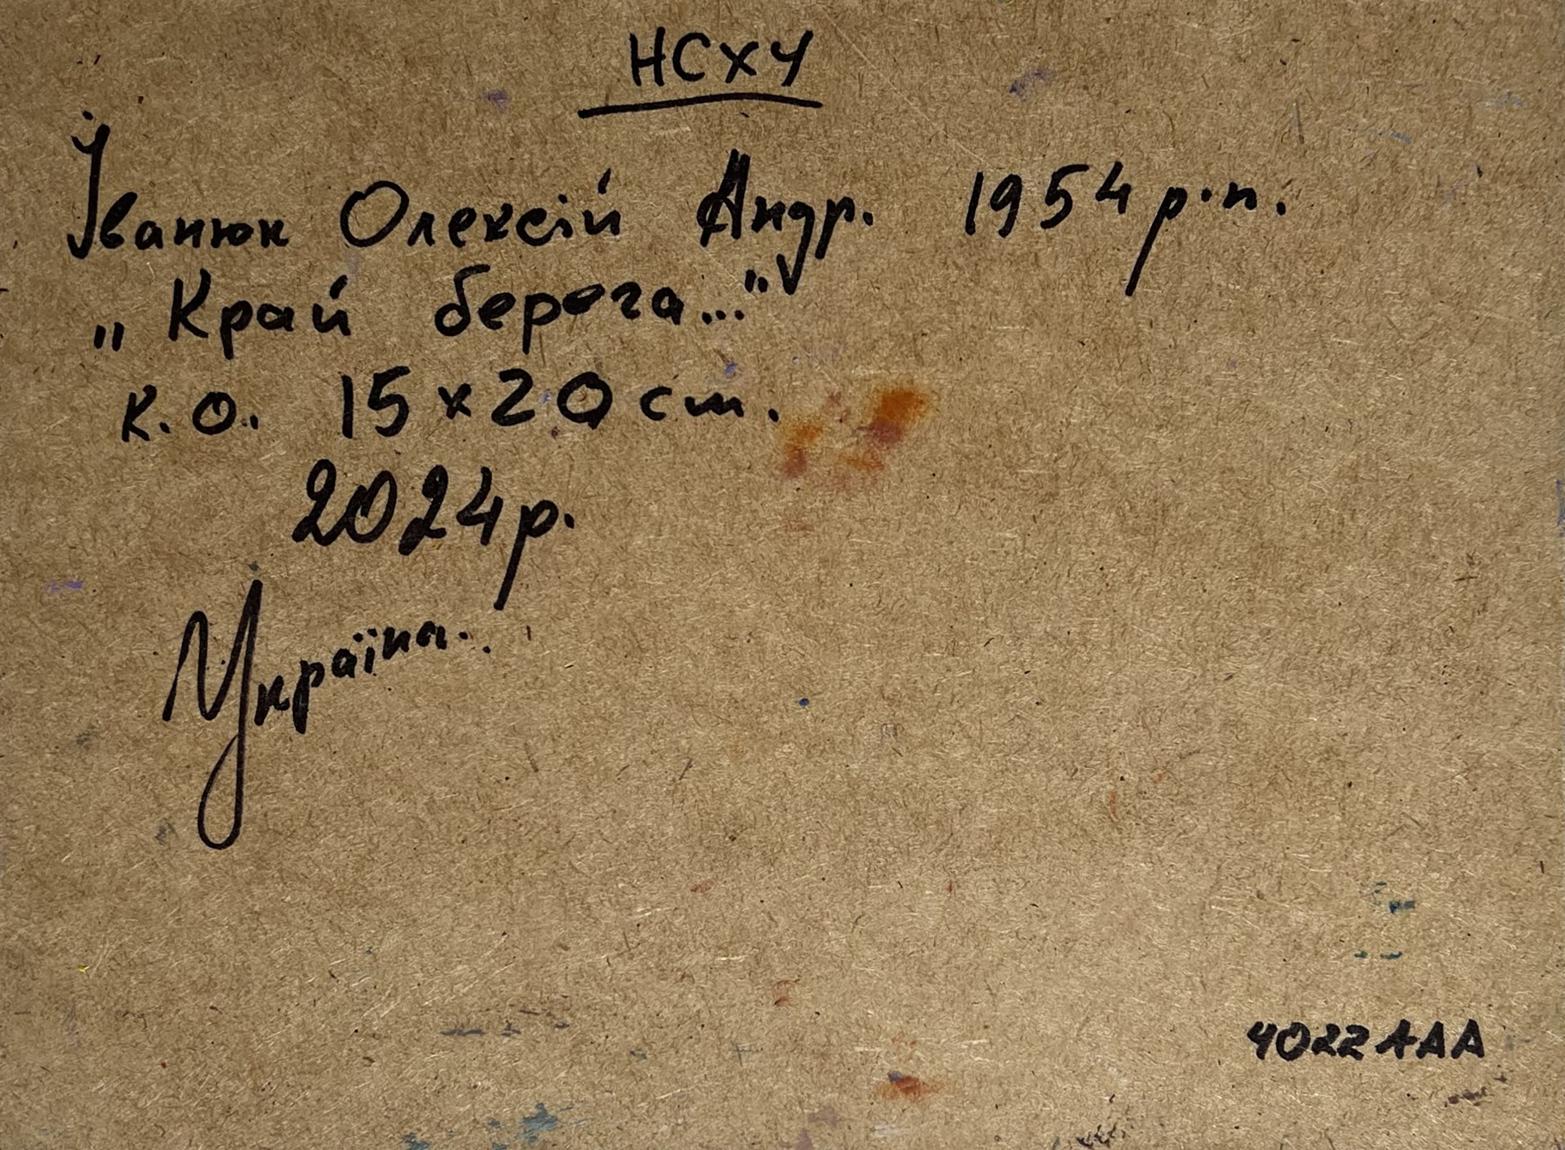 НСХУ
Іванюк Олексій Андр. 1954 р.н.
„Край берега..."
к.о. 15х20 см.
2024 р.
Україна.
4022AAA